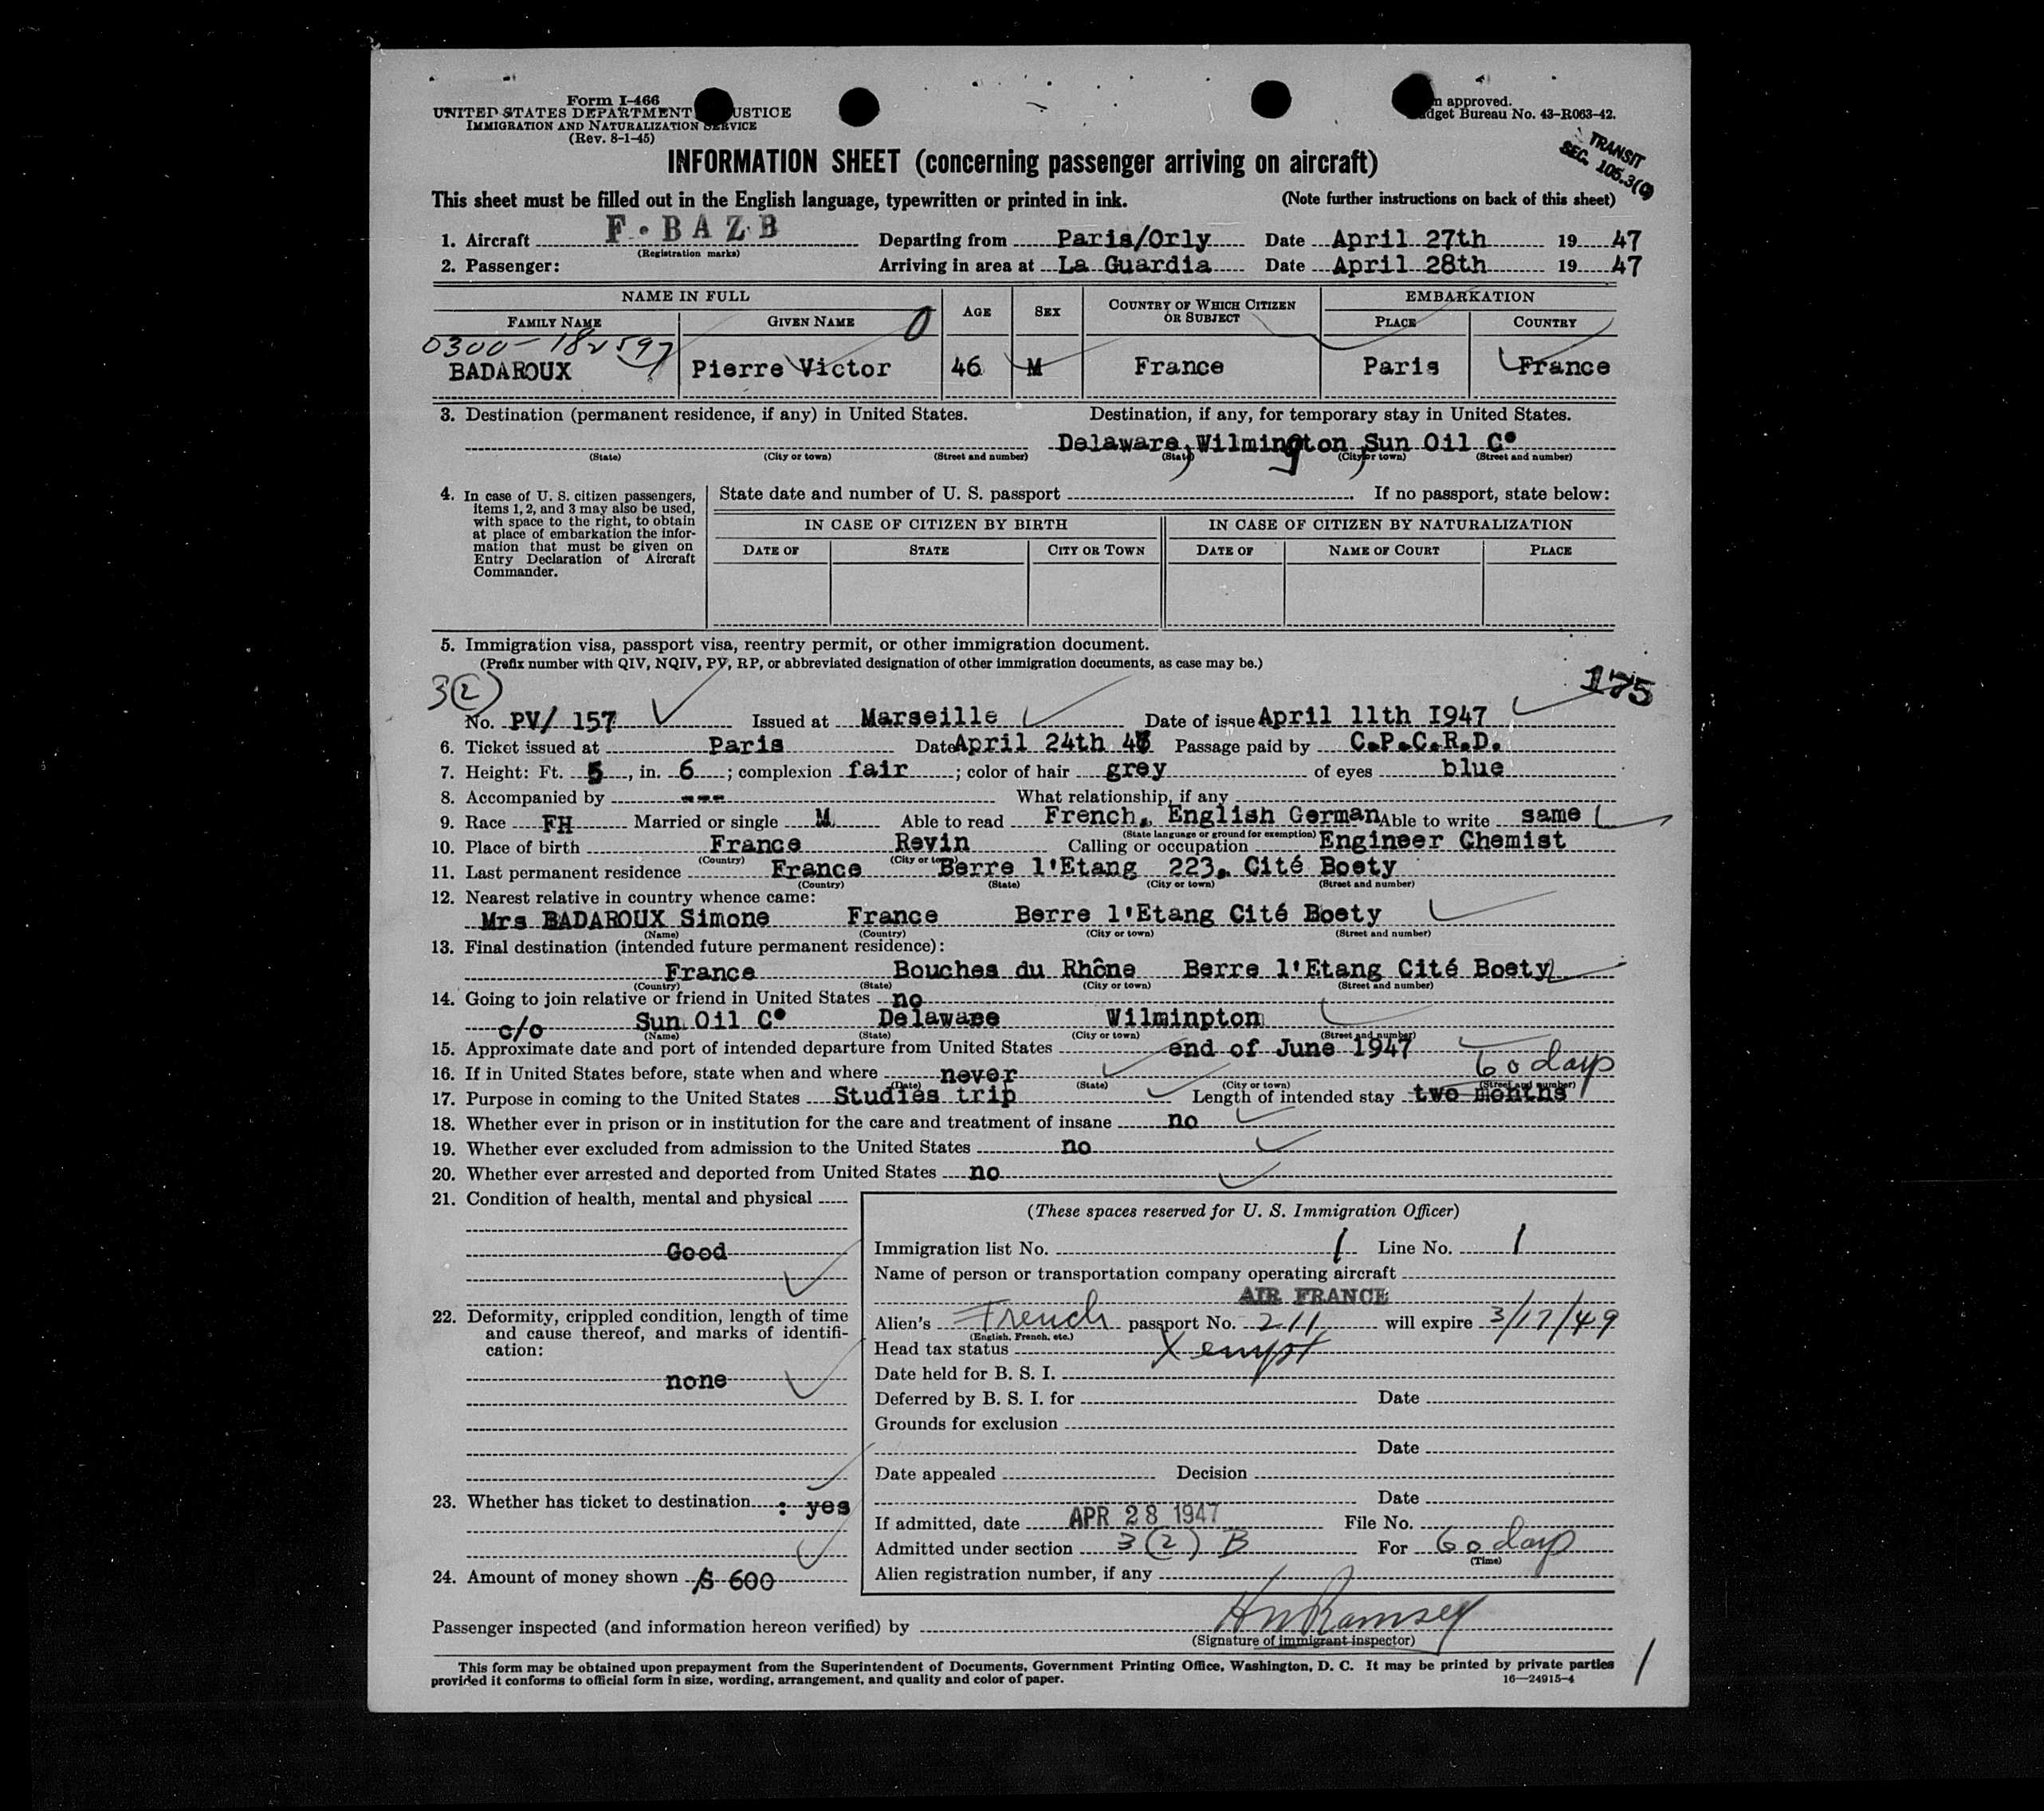 Form I-466
UNITED STATES DEPARTMENT JUSTICE
IMMIGRATION AND NATURALIZATION SERVICE
(Rev. 8-1-45)
approved.
Bureau No. 43-R063-42.
TRANSIT
SEC. 105.3(C)
INFORMATION SHEET (concerning passenger arriving on aircraft)
This sheet must be filled out in the English language, typewritten or printed in ink. (Note further instructions on back of this sheet)
1. Aircraft F.BAZB Departing from Paris/Orly Date April 27th 19 47
(Registration marks)
2. Passenger: Arriving in area at La Guardia Date April 28th 19 47
NAME IN FULL AGE SEX COUNTRY OF WHICH CITIZEN OR SUBJECT EMBARKATION
FAMILY NAME GIVEN NAME 0 PLACE COUNTRY
0300-182597
BADAROUX Pierre Victor 46 M France Paris France
3. Destination (permanent residence, if any) in United States. Destination, if any, for temporary stay in United States.
Delaware, Wilmington, Sun Oil C°
(State) (City or town) (Street and number) (State) (City or town) (Street and number)
4. In case of U. S. citizen passengers, items 1, 2, and 3 may also be used, with space to the right, to obtain at place of embarkation the information that must be given on Entry Declaration of Aircraft Commander.
State date and number of U. S. passport . If no passport, state below:
IN CASE OF CITIZEN BY BIRTH IN CASE OF CITIZEN BY NATURALIZATION
DATE OF STATE CITY OR TOWN DATE OF NAME OF COURT PLACE
5. Immigration visa, passport visa, reentry permit, or other immigration document.
(Prefix number with QIV, NQIV, PV, RP, or abbreviated designation of other immigration documents, as case may be.)
3(2) 175
No. PV/ 157 Issued at Marseille Date of issue April 11th I947
6. Ticket issued at Paris Date April 24th 47 Passage paid by C.P.C.R.D.
7. Height: Ft. 5, in. 6; complexion fair; color of hair grey of eyes blue
8. Accompanied by --- What relationship, if any
9. Race FH Married or single M Able to read French, English German Able to write same
(State language or ground for exemption)
10. Place of birth France Revin Calling or occupation Engineer Chemist
(Country) (City or town)
11. Last permanent residence France Berre l'Etang 223, Cité Boety
(Country) (State) (City or town) (Street and number)
12. Nearest relative in country whence came:
Mrs BADAROUX Simone France Berre l'Etang Cité Boety
(Name) (Country) (City or town) (Street and number)
13. Final destination (intended future permanent residence):
France Bouches du Rhône Berre l'Etang Cité Boety
(Country) (State) (City or town) (Street and number)
14. Going to join relative or friend in United States no
c/o Sun Oil C° Delaware Wilminpton
(Name) (State) (City or town) (Street and number)
15. Approximate date and port of intended departure from United States end of June 1947
16. If in United States before, state when and where never 60 days
(Date) (State) (City or town) (Street and number)
17. Purpose in coming to the United States Studies trip Length of intended stay two months
18. Whether ever in prison or in institution for the care and treatment of insane no
19. Whether ever excluded from admission to the United States no
20. Whether ever arrested and deported from United States no
21. Condition of health, mental and physical
Good
22. Deformity, crippled condition, length of time and cause thereof, and marks of identification:
none
23. Whether has ticket to destination : yes
24. Amount of money shown $ 600
(These spaces reserved for U. S. Immigration Officer)
Immigration list No. 1 Line No. 1
Name of person or transportation company operating aircraft
AIR FRANCE
Alien's French passport No. 211 will expire 3/17/49
(English, French, etc.)
Head tax status Xempt
Date held for B. S. I.
Deferred by B. S. I. for Date
Grounds for exclusion
Date
Date appealed Decision
Date
If admitted, date APR 28 1947 File No.
Admitted under section 3(2) B For 60 days
(Time)
Alien registration number, if any
Passenger inspected (and information hereon verified) by HW Ramsey
(Signature of immigrant inspector)
This form may be obtained upon prepayment from the Superintendent of Documents, Government Printing Office, Washington, D. C. It may be printed by private parties
provided it conforms to official form in size, wording, arrangement, and quality and color of paper. 16—24915-4
1